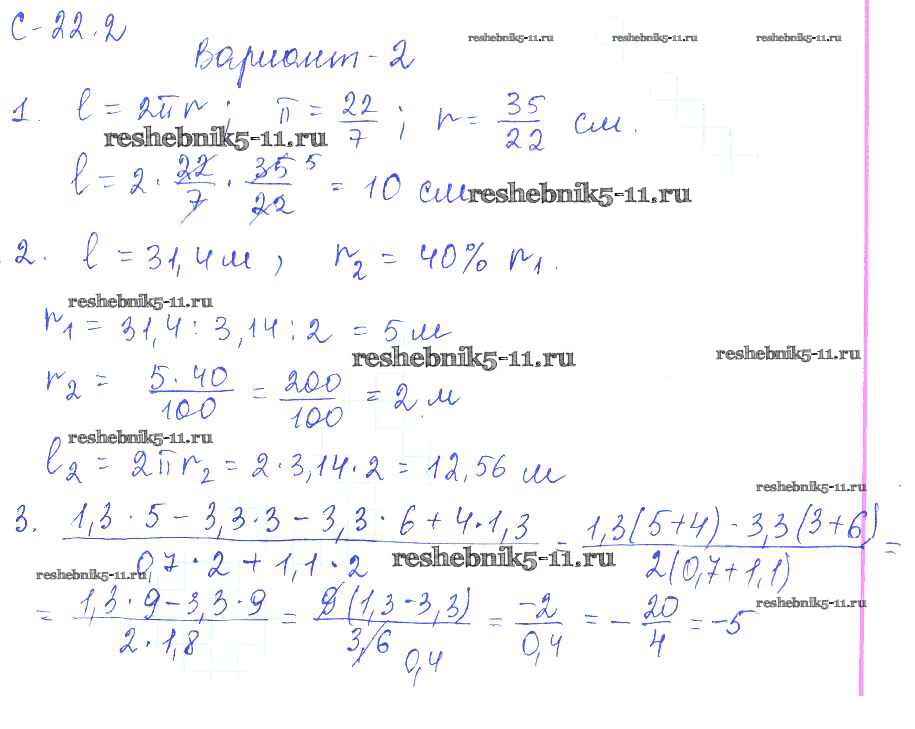 С-22.2
reshebnik5-11.ru reshebnik5-11.ru reshebnik5-11.ru
Вариант-2
1. l = 2πr; π = 22/7; r = 35/22 см.
reshebnik5-11.ru
l = 2 · 22/7 · 35/22 5 = 10 см
reshebnik5-11.ru
2. l = 31,4 м, r₂ = 40% r₁.
reshebnik5-11.ru
r₁ = 31,4 : 3,14 : 2 = 5 м
reshebnik5-11.ru reshebnik5-11.ru
r₂ = 5·40/100 = 200/100 = 2 м
reshebnik5-11.ru
l₂ = 2πr₂ = 2·3,14·2 = 12,56 м
reshebnik5-11.ru
3. (1,3·5 - 3,3·3 - 3,3·6 + 4·1,3)/(0,7·2 + 1,1·2) = (1,3(5+4) - 3,3(3+6))/(2(0,7+1,1)) =
reshebnik5-11.ru reshebnik5-11.ru reshebnik5-11.ru
= (1,3·9 - 3,3·9)/(2·1,8) = 9(1,3 - 3,3)/3,6 0,4 = -2/0,4 = -20/4 = -5